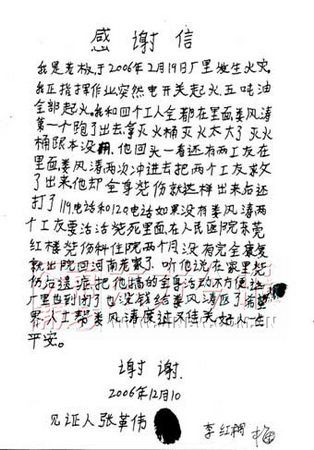 感谢信
我是老板,于2006年2月19日厂里发生火灾.
我正指挥作业突然电开关起火,五吨油
全部起火。我和四个工人全都在里面娄风涛
第一个跑了出去,拿灭火桶灭火太大了灭火
桶跟本没用,他回头一看还有两工友在
里面,娄风涛两次冲进去把两个工友救
了出来他却全身烧伤就这样出来后还
打了119电话和120电话如果没有娄风涛两
个工友要活活烧死里面,在人民医院东莞
红楼烧伤科住院两个月没有完全康复
就出院回河南老家了,听他说在家里烧
伤后遗症把他搞的全身活动不方便这
厂里也到闭了也没钱给娄风涛医了
界人士帮娄风涛度过又佳关好人一生
平安。
谢谢.
2006年12月10
见证人张革伟
李红